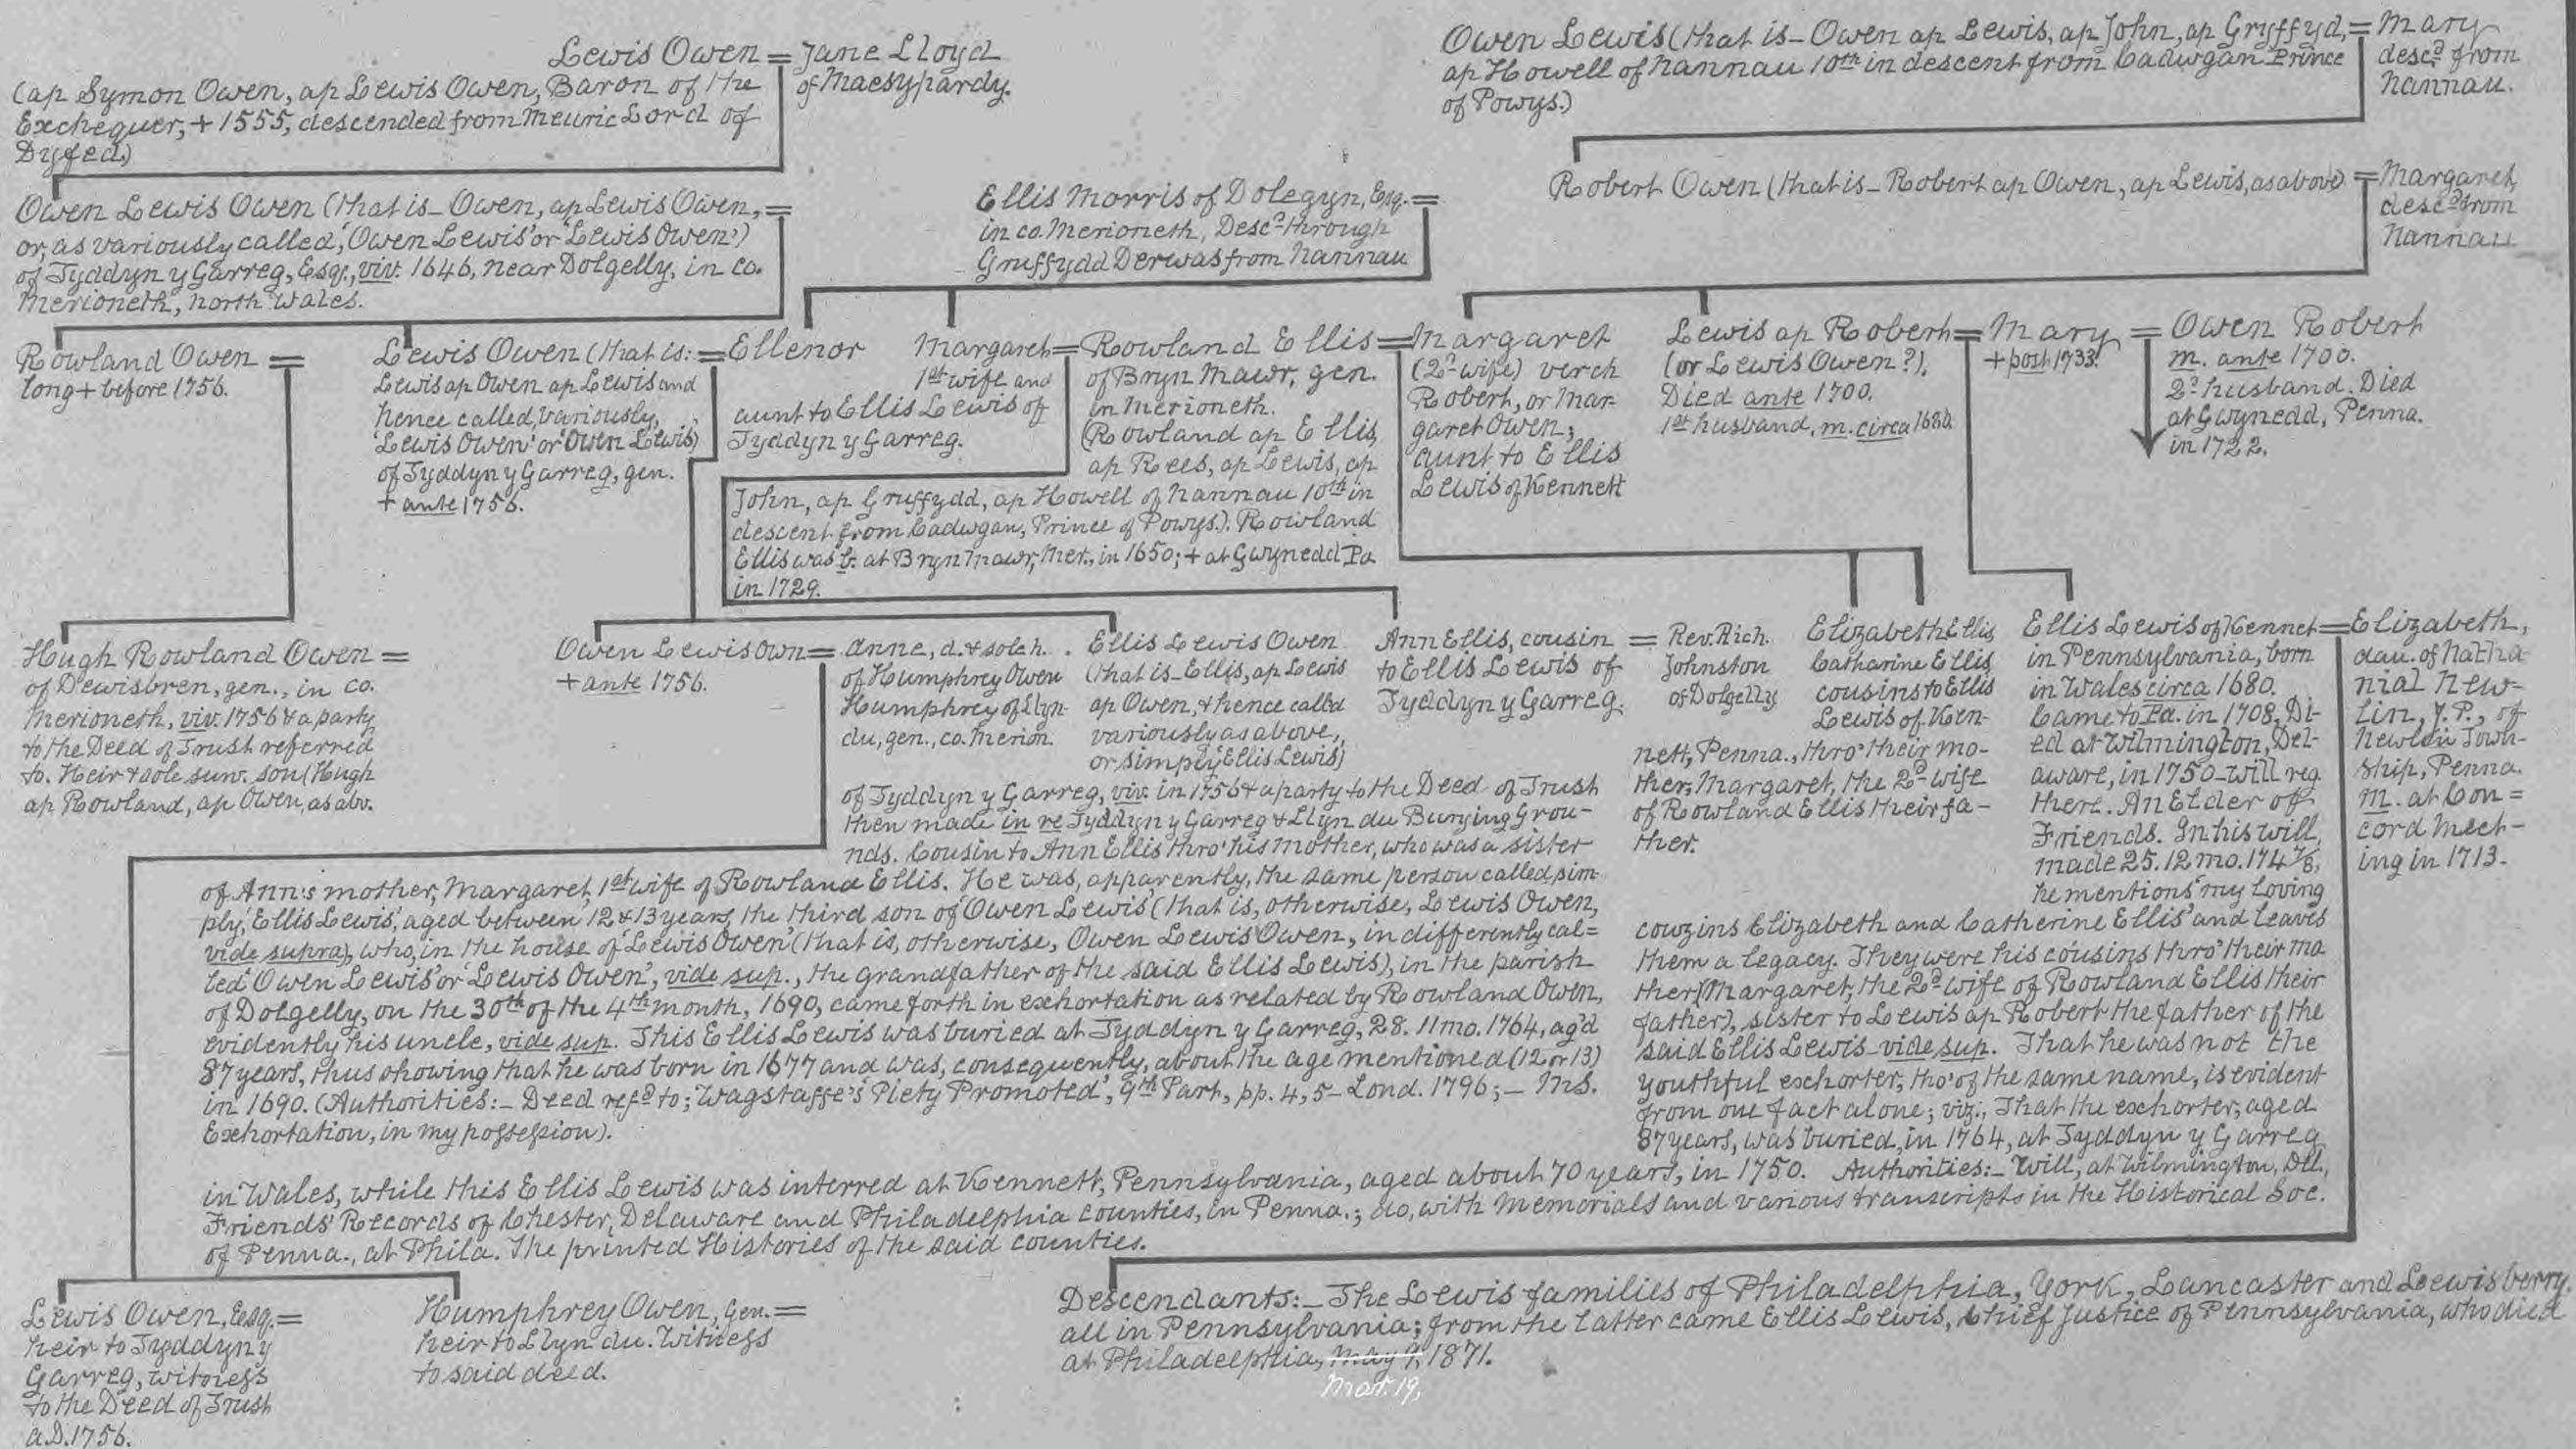 Lewis Owen = Jane Lloyd
of Maesypardy.
(ap Symon Owen, ap Lewis Owen, Baron of the
Exchequer, + 1555, descended from Meuric Lord of
Dyfed.)
Owen Lewis (that is _ Owen ap Lewis, ap John, ap Gryffyd, = Mary
ap Howell of Nannau 10th in descent from Cadwgan Prince
of Powys.)
desc.d from
Nannau.
Owen Lewis Owen (that is _ Owen, ap Lewis Owen, =
or, as variously called, 'Owen Lewis' or 'Lewis Owen')
of Tyddyn y Garreg, Esq., viv. 1646, near Dolgelly, in co.
Merioneth, North Wales.
Ellis Morris of Dolegyn, Esq. =
in co. Merioneth, Desc.d through
Gruffydd Derwas from Nannau
Robert Owen (that is _ Robert ap Owen, ap Lewis, as above) = Margaret,
desc.d from
Nannau
Rowland Owen =
long + before 1756.
Lewis Owen (that is: = Ellenor
Lewis ap Owen ap Lewis and
hence called, variously,
'Lewis Owen' or 'Owen Lewis')
of Tyddyn y Garreg, gen.
+ ante 1756.
aunt to Ellis Lewis of
Tyddyn y Garreg.
Margaret = Rowland Ellis = Margaret
1st wife and
of Bryn Mawr, gen.
in Merioneth.
(Rowland ap Ellis,
ap Rees, ap Lewis, ap
John, ap Gruffydd, ap Howell of Nannau 10th in
descent from Cadwgan, Prince of Powys.). Rowland
Ellis was b. at Bryn Mawr, Mer., in 1650; + at Gwynedd Pa
in 1729.
(2d wife) verch
Robert, or Mar-
garet Owen;
aunt to Ellis
Lewis of Kennett
Lewis ap Robert = Mary = Owen Robert
(or Lewis Owen?).
Died ante 1700.
1st husband, m. circa 1680.
+ post 1733.
m. ante 1700.
2d husband. Died
at Gwynedd, Penna.
in 1722.
Hugh Rowland Owen =
of Dewisbren, gen., in co.
Merioneth, viv. 1756 & a party
to the Deed of Trust referred
to. Heir & sole surv. son (Hugh
ap Rowland, ap Owen, as abv.
Owen Lewis Own = Anne, d. & sole h.
+ ante 1756.
of Humphrey Owen
Humphrey of Llyn-
du, gen., co. Merion.
Ellis Lewis Owen
(that is _ Ellis, ap Lewis
ap Owen, & hence called
variously as above,
or simply 'Ellis Lewis')
of Tyddyn y Garreg, viv. in 1756 & a party to the Deed of Trust
then made in re Tyddyn y Garreg & Llyn du Burying Grou-
nds. Cousin to Ann Ellis thro' his mother, who was a sister
of Ann's mother, Margaret, 1st wife of Rowland Ellis. He was, apparently, the same person called sim-
ply, 'Ellis Lewis', aged between 12 & 13 years, the third son of 'Owen Lewis' (that is, otherwise, Lewis Owen,
vide supra), who, in the house of 'Lewis Owen' (that is, otherwise, Owen Lewis Owen, indifferently cal=
led 'Owen Lewis' or 'Lewis Owen', vide sup., the grandfather of the said Ellis Lewis), in the parish
of Dolgelly, on the 30th of the 4th month, 1690, came forth in exhortation as related by Rowland Owen,
evidently his uncle, vide sup. This Ellis Lewis was buried at Tyddyn y Garreg, 28. 11mo. 1764, ag'd
87 years, thus showing that he was born in 1677 and was, consequently, about the age mentioned (12 or 13)
in 1690. (Authorities: _ Deed ref.d to; Wagstaffe's 'Piety Promoted', 9th Part, pp. 4, 5 _ Lond. 1796; _ Ms.
Exhortation, in my possession).
Ann Ellis, cousin = Rev. Rich.
to Ellis Lewis of
Tyddyn y Garreg.
Johnston
of Dolgelly
Elizabeth Ellis
Catharine Ellis
cousins to Ellis
Lewis of Ken-
nett, Penna., thro' their mo-
ther, Margaret, the 2d wife
of Rowland Ellis their fa-
ther.
Ellis Lewis of Kennet = Elizabeth,
in Pennsylvania, born
in Wales circa 1680.
Came to Pa. in 1708, Di-
ed at Wilmington, Del-
aware, in 1750 _ will reg.
there. An Elder of
Friends. In his will,
made 25. 12 mo. 174 7/8,
he mentions 'my loving
cowzins Elizabeth and Catherine Ellis' and leaves
them a legacy. They were his cousins thro' their mo
ther (Margaret, the 2d wife of Rowland Ellis their
father), sister to Lewis ap Robert the father of the
said Ellis Lewis _ vide sup. That he was not the
youthful exhorter, tho' of the same name, is evident
from one fact alone; viz., That the exhorter, aged
87 years, was buried, in 1764, at Tyddyn y Garreg
in Wales, while this Ellis Lewis was interred at Kennett, Pennsylvania, aged about 70 years, in 1750. Authorities: _ Will, at Wilmington, Del.,
Friends' Records of Chester, Delaware and Philadelphia counties, in Penna.; do, with Memorials and various transcripts in the Historical Soc.
of Penna., at Phila. The printed Histories of the said counties.
dau. of Natha-
nial New-
lin, J. P., of
Newlin Town-
ship, Penna.
M. at Con=
cord Meet-
ing in 1713.
Lewis Owen, Esq. =
heir to Tyddyn y
Garreg, witness
to the Deed of Trust
A.D. 1756.
Humphrey Owen, Gen. =
heir to Llyn du. Witness
to said deed.
Descendants: _ The Lewis families of Philadelphia, York, Lancaster and Lewisberry,
all in Pennsylvania; from the latter came Ellis Lewis, Chief Justice of Pennsylvania, who died
at Philadelphia, May 9, 1871.
Mar. 19,